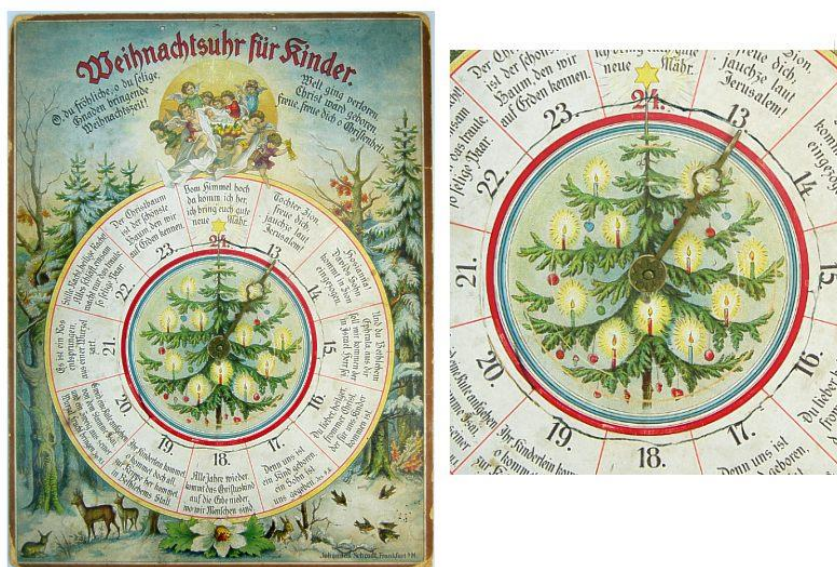 Weihnachtsuhr für Kinder.
O, du fröhliche, o du selige,
Gnaden bringende
Weihnachtszeit!
Welt ging verloren,
Christ ward geboren,
freue, freue dich o Christenheit.
Vom Himmel hoch
da komm ich her,
ich bring euch gute
neue Mähr.
24.
Tochter Zion,
freue dich,
jauchze laut
Jerusalem!
13.
Hosianna!
Davids Sohn
kommt in Zion
eingezogen
14.
Und du Bethlehem
Ephrata aus dir
soll mir kommen der
in Israel Herr sei
15.
Du lieber heilger,
frommer Christ,
der für uns Kinder
kommen ist.
16.
Denn uns ist
ein Kind geboren,
ein Sohn ist
uns gegeben.
17.
Alle Jahre wieder
kommt das Christuskind
auf die Erde nieder,
wo wir Menschen sind
18.
Ihr Kinderlein kommet,
o kommet doch all,
zur Krippe her kommet
in Bethlehems Stall.
19.
Es ist ein Ros
entsprungen
aus einer Wurzel
zart.
21.
20.
Stille Nacht, heilige Nacht!
Alles schläft, einsam
wacht nur das traute,
so selige Paar
22.
Der Christbaum
ist der schönste
Baum, den wir
auf Erden kennen.
23.
Johannes Schmidt, Frankfurt a/M.
Der Chri
ist der schönst
Baum, den wir
auf Erden kennen.
23.
ich bring euch gute
neue Mähr.
24.
freue dich,
jauchze laut
Jerusalem!
13.
14.
eingezo
15.
16.
Du lie
Denn uns ist
geboren,
17.
18.
Ihr Kinderlein kom
o kommet
19.
20.
21.
22.
das traute,
so selige Paar